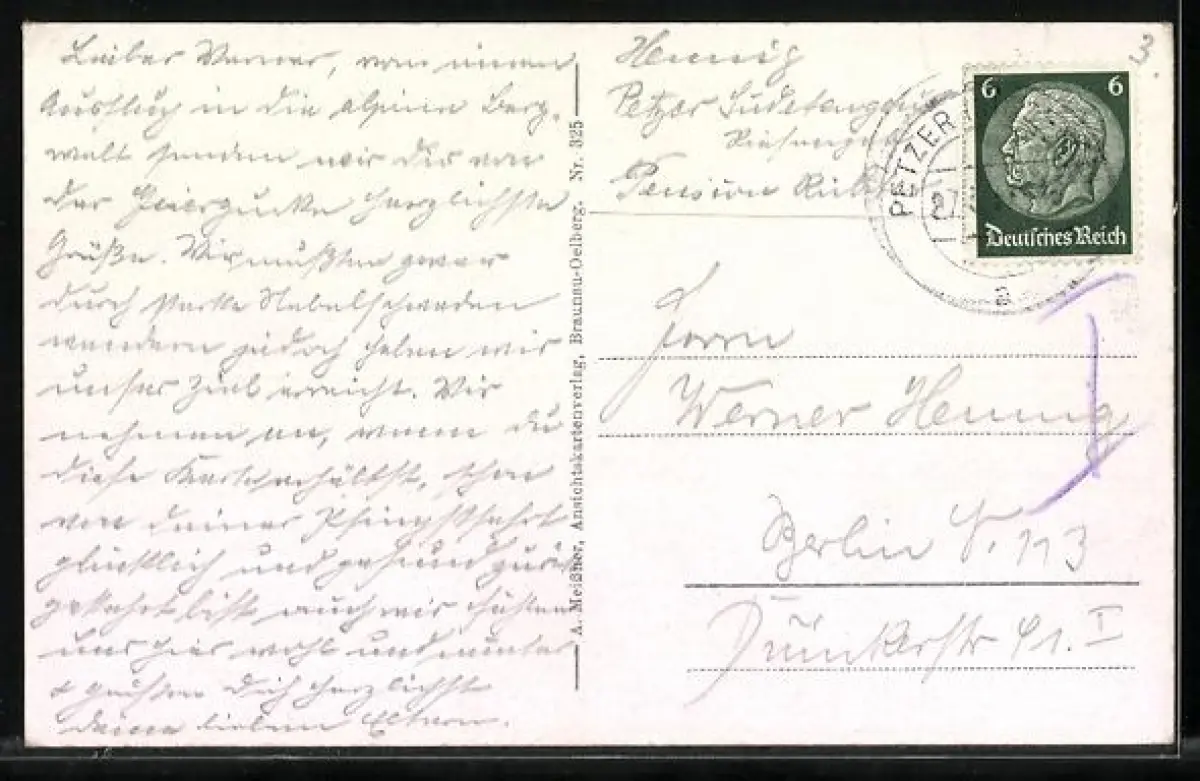 Lieber Werner, von einem
Ausflug in die alpine Berg-
welt senden wir dir von
der Geiergucke herzlichste
Grüße. Wir mußten zwar
durch starke Nebelschwaden
wandern jedoch haben wir
unser Ziel erreicht. Wir
nehmen an, wenn du
diese Karte erhältst, schon
von deiner Pfingstfahrt
glücklich und gesund zurück
gekehrt bist auch wir fühlen
uns hier wohl und munter
& grüßen Dich herzlichst
deine lieben Eltern.
A. Meißner, Ansichtskartenverlag, Braunau-Oelberg. Nr. 325
Hennig
Petzer Sudetengau
Riesengeb
Pension
3.
PETZER
6 6
Deutsches Reich
a
Herrn
Werner Hennig
Berlin N. 113
Dünkerstr 41. I